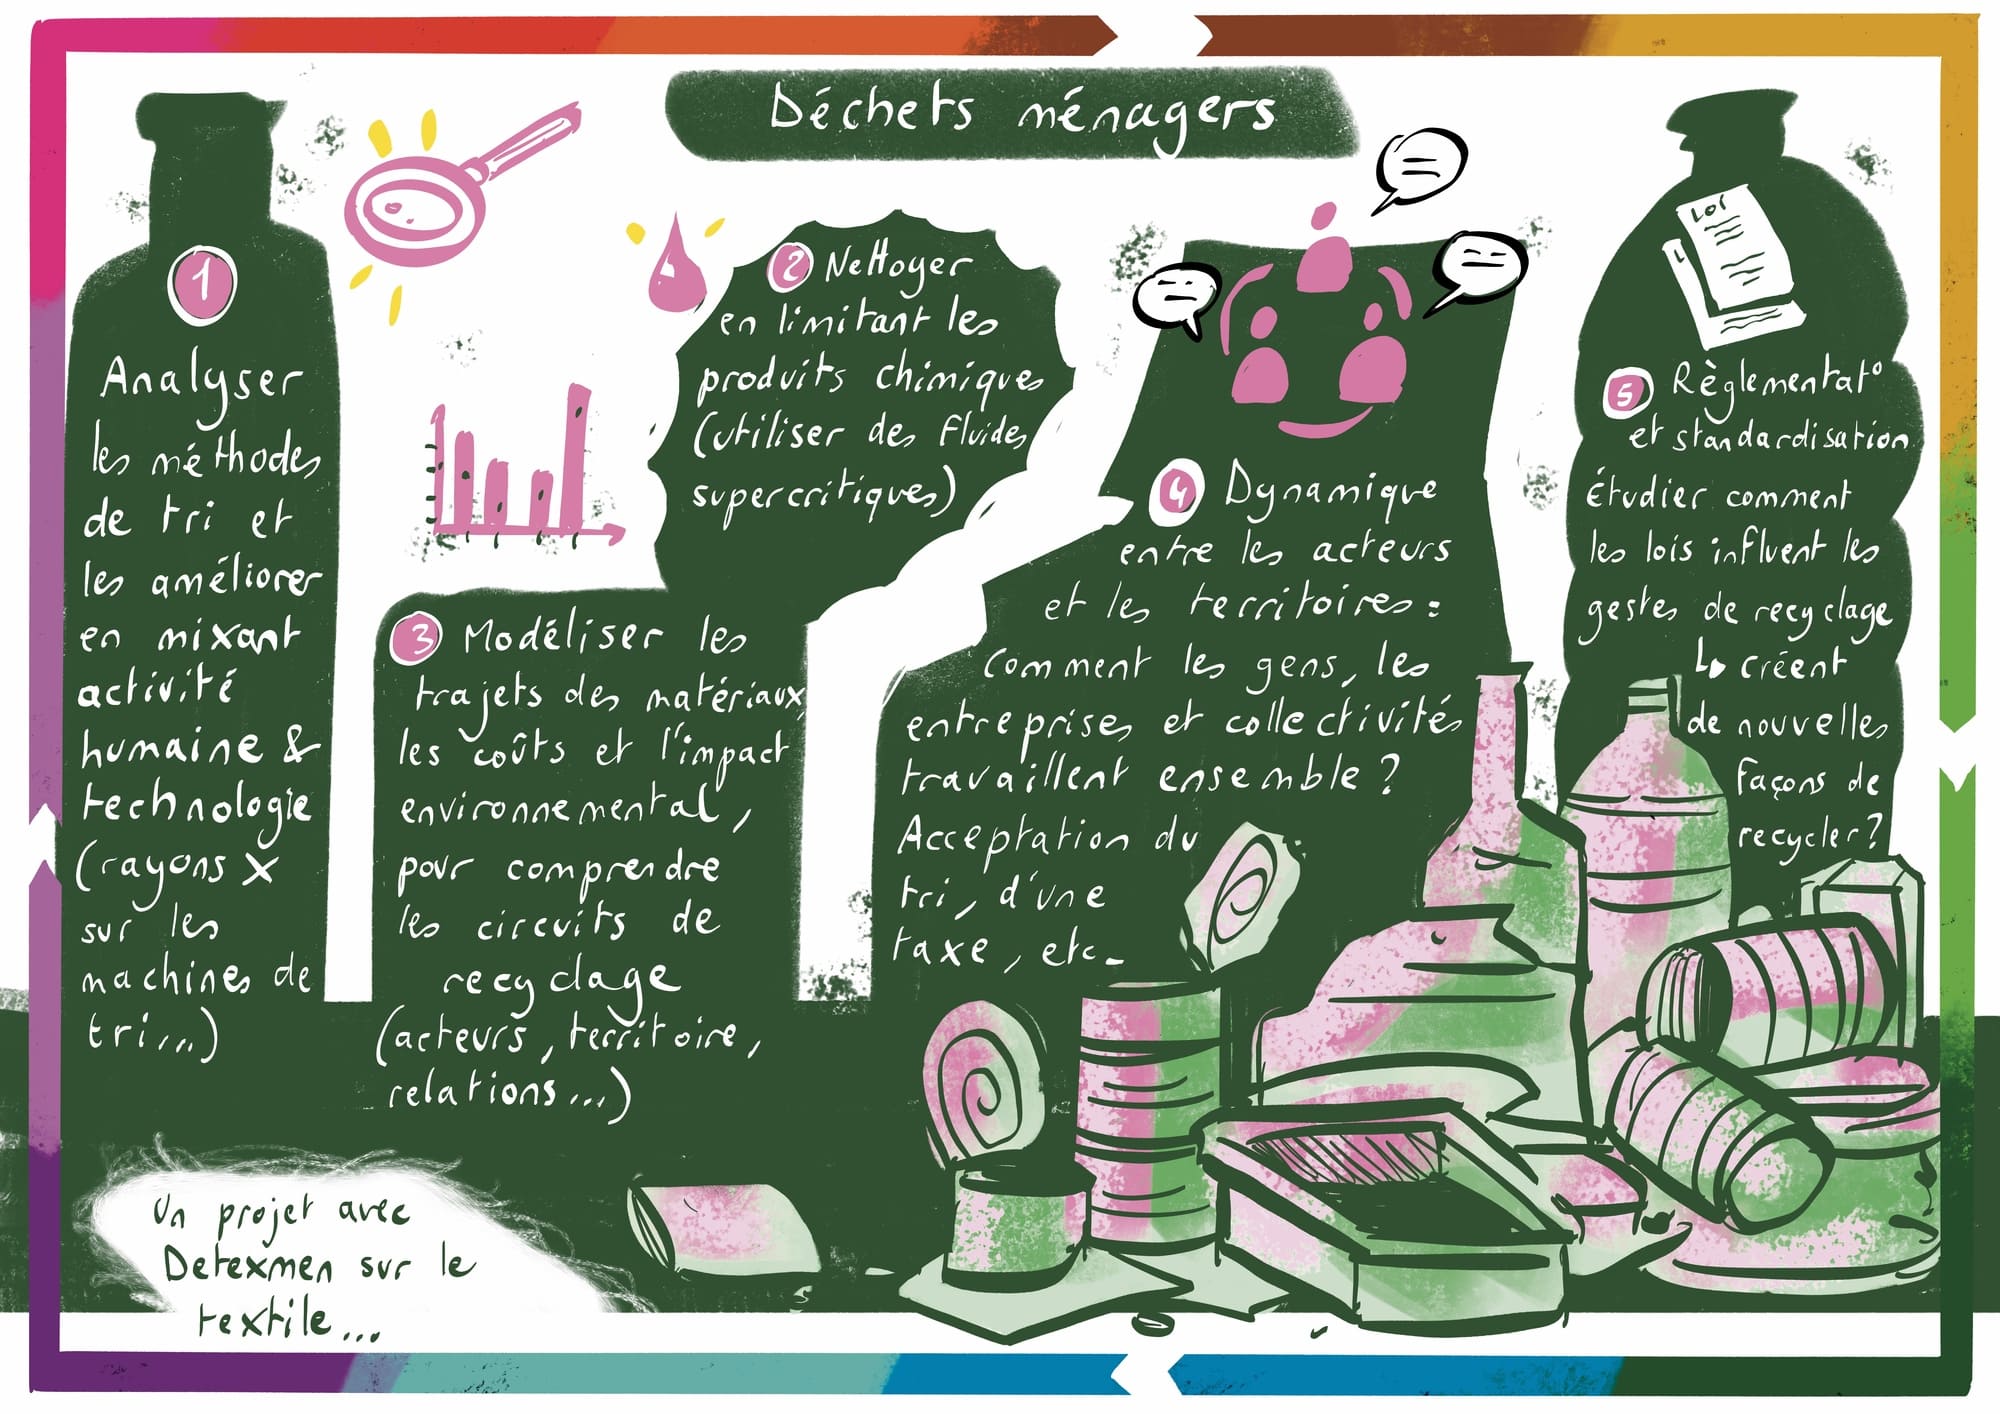 Déchets ménagers
1
Analyser
les méthodes
de tri et
les améliorer
en mixant
activité
humaine &
technologie
(rayons X
sur les
machines de
tri...)
2 Nettoyer
en limitant les
produits chimiques
(utiliser des fluides
supercritiques)
3 Modéliser les
trajets des matériaux,
les coûts et l'impact
environnemental,
pour comprendre
les circuits de
recyclage
(acteurs, territoire,
relations...)
4 Dynamique
entre les acteurs
et les territoires :
Comment les gens, les
entreprises et collectivités
travaillent ensemble ?
Acceptation du
tri, d'une
taxe, etc.
LOI
5 Règlementat°
et standardisation
Étudier comment
les lois influent les
gestes de recyclage
↳ créent
de nouvelles
façons de
recycler ?
Un projet avec
Detexmen sur le
textile...